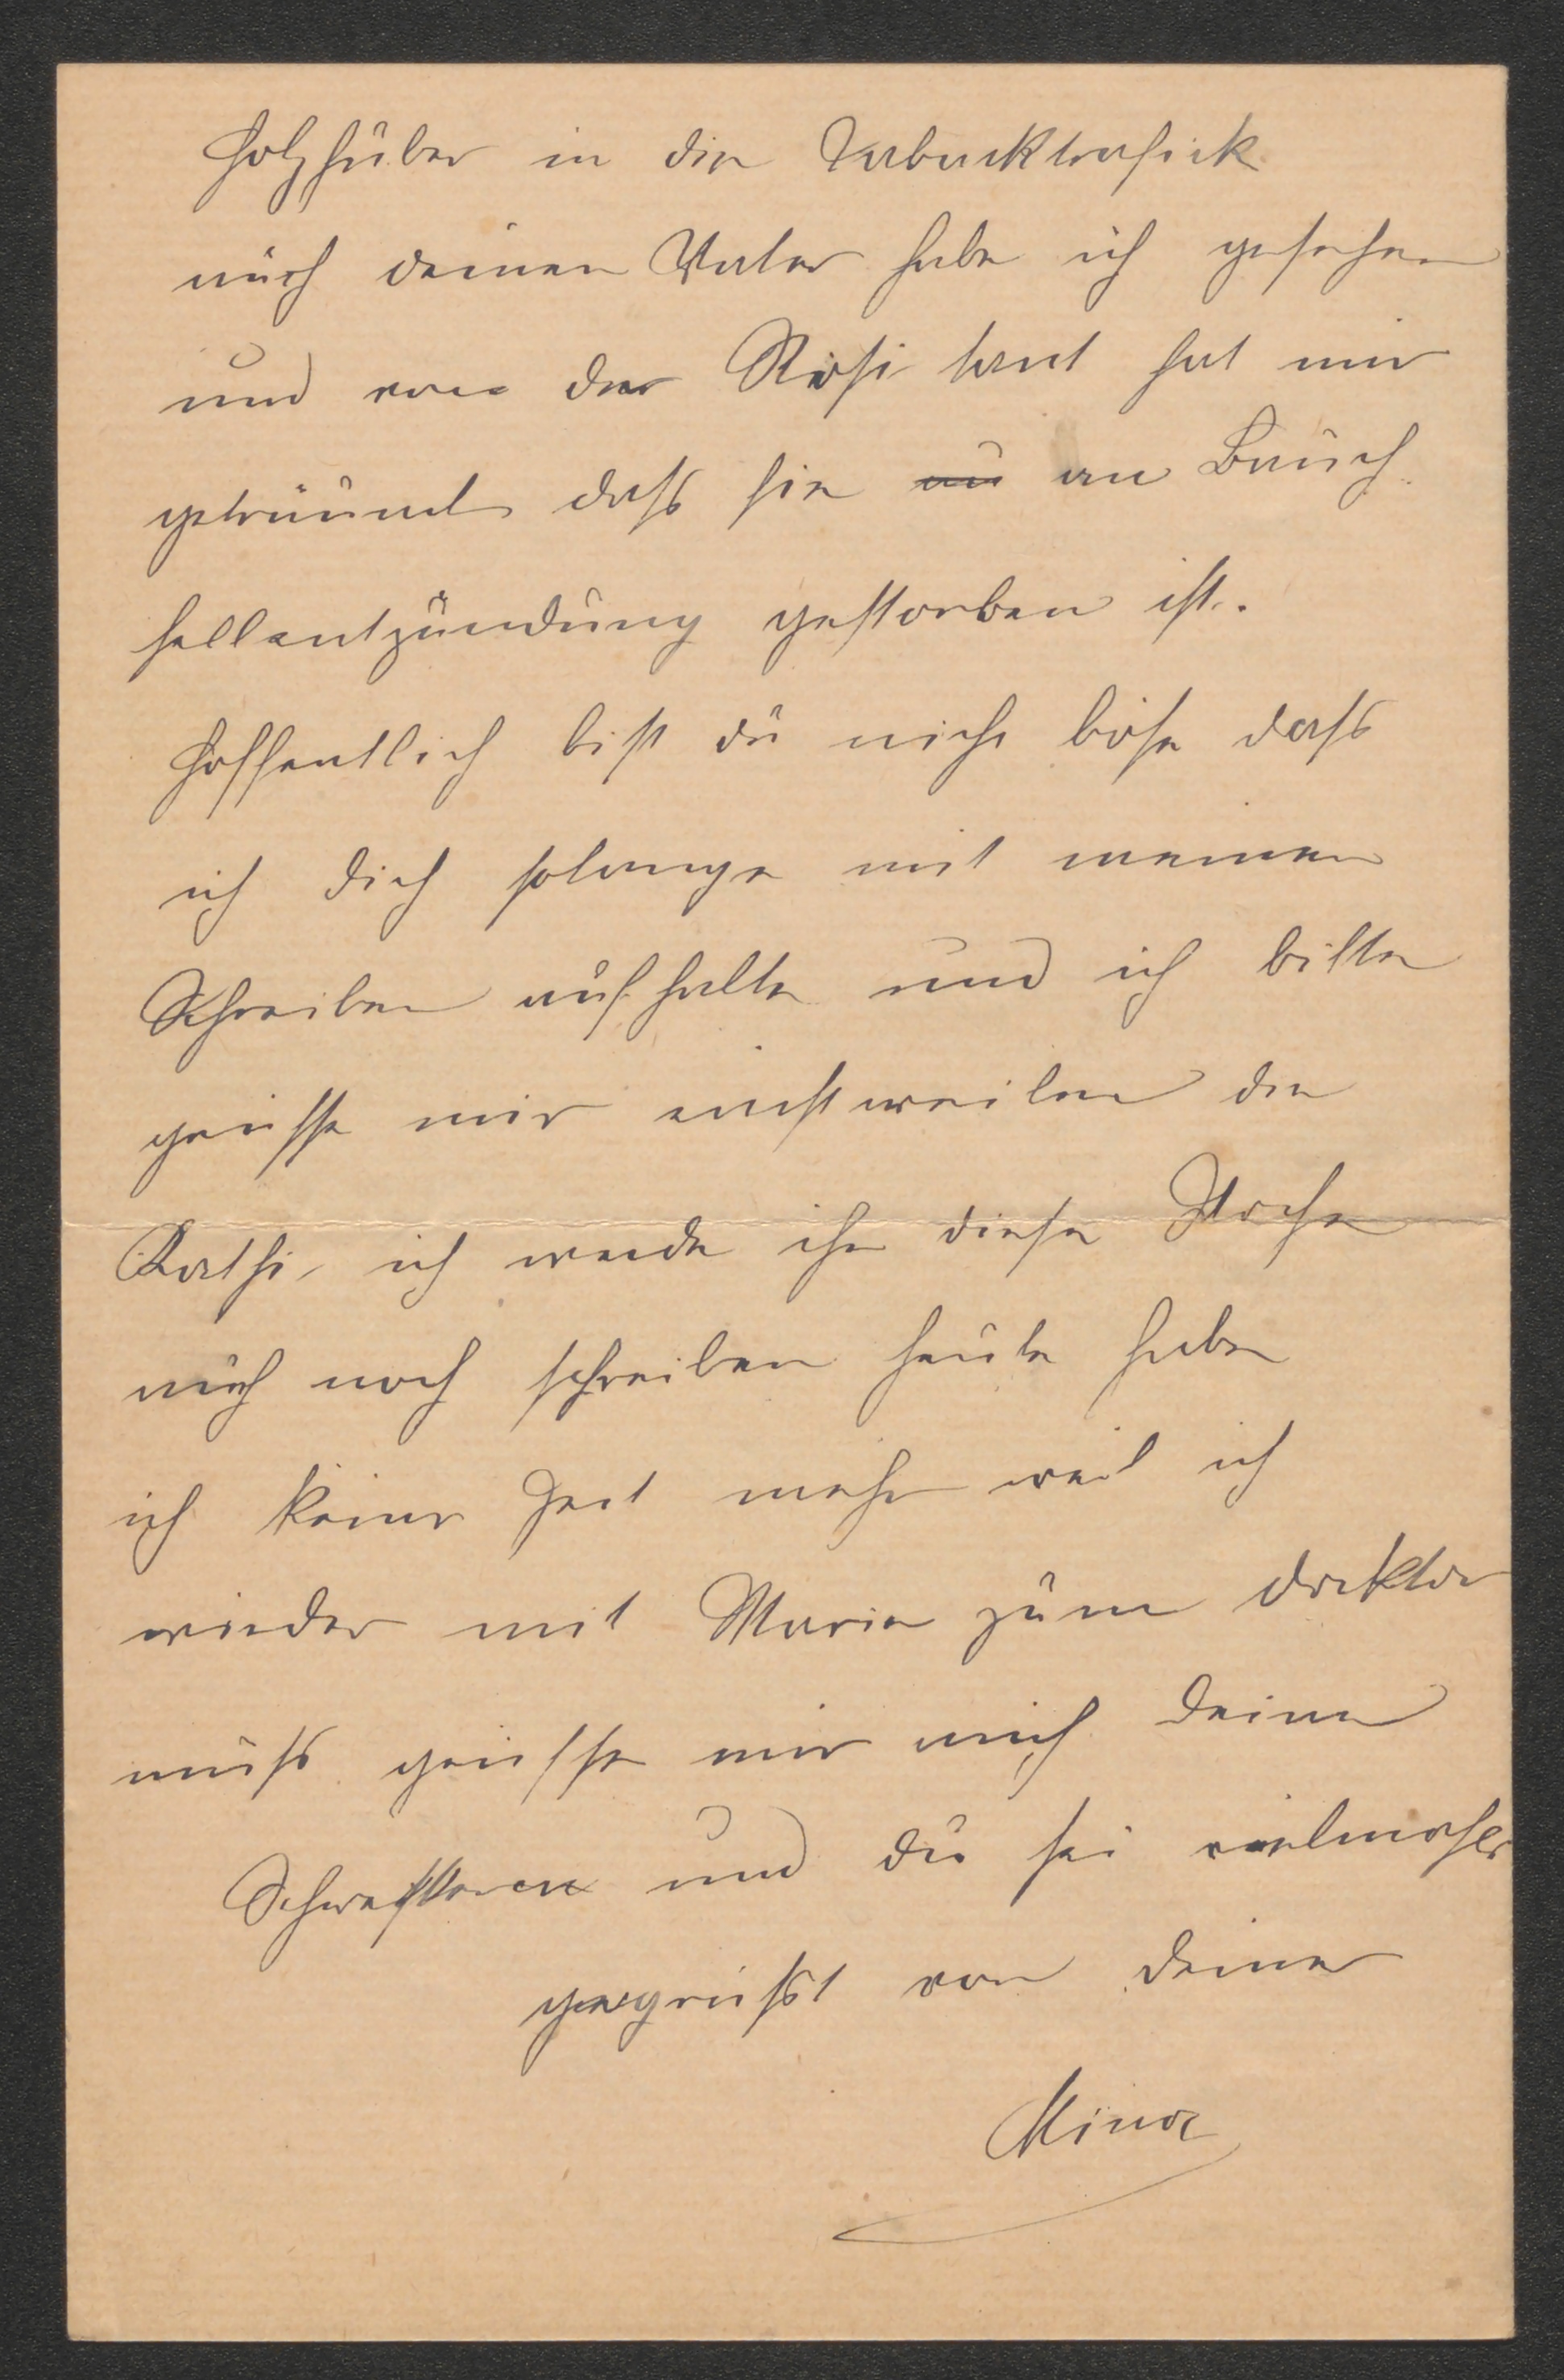 Holzhuber in die Tabacktrafick
auch deinen Vater habe ich gesehen
und von der Resi tant hat mir
geträumt dass sie au an Bauch
fellentzündung gestorben ist.
Hoffentlich bist du nicht böse dass
ich dich solange mit meinen
Schreiben aufhalte und ich bitte
grüsse mir einstweilen die
Kathi, ich werde ihr diese Woche
auch noch schreiben heute habe
ich keine Zeit mehr weil ich
wieder mit Marie zum doktor
muss grüsse mir auch deine
Schwestern und du sei vielmahls
gegrüsst von deiner
Mina